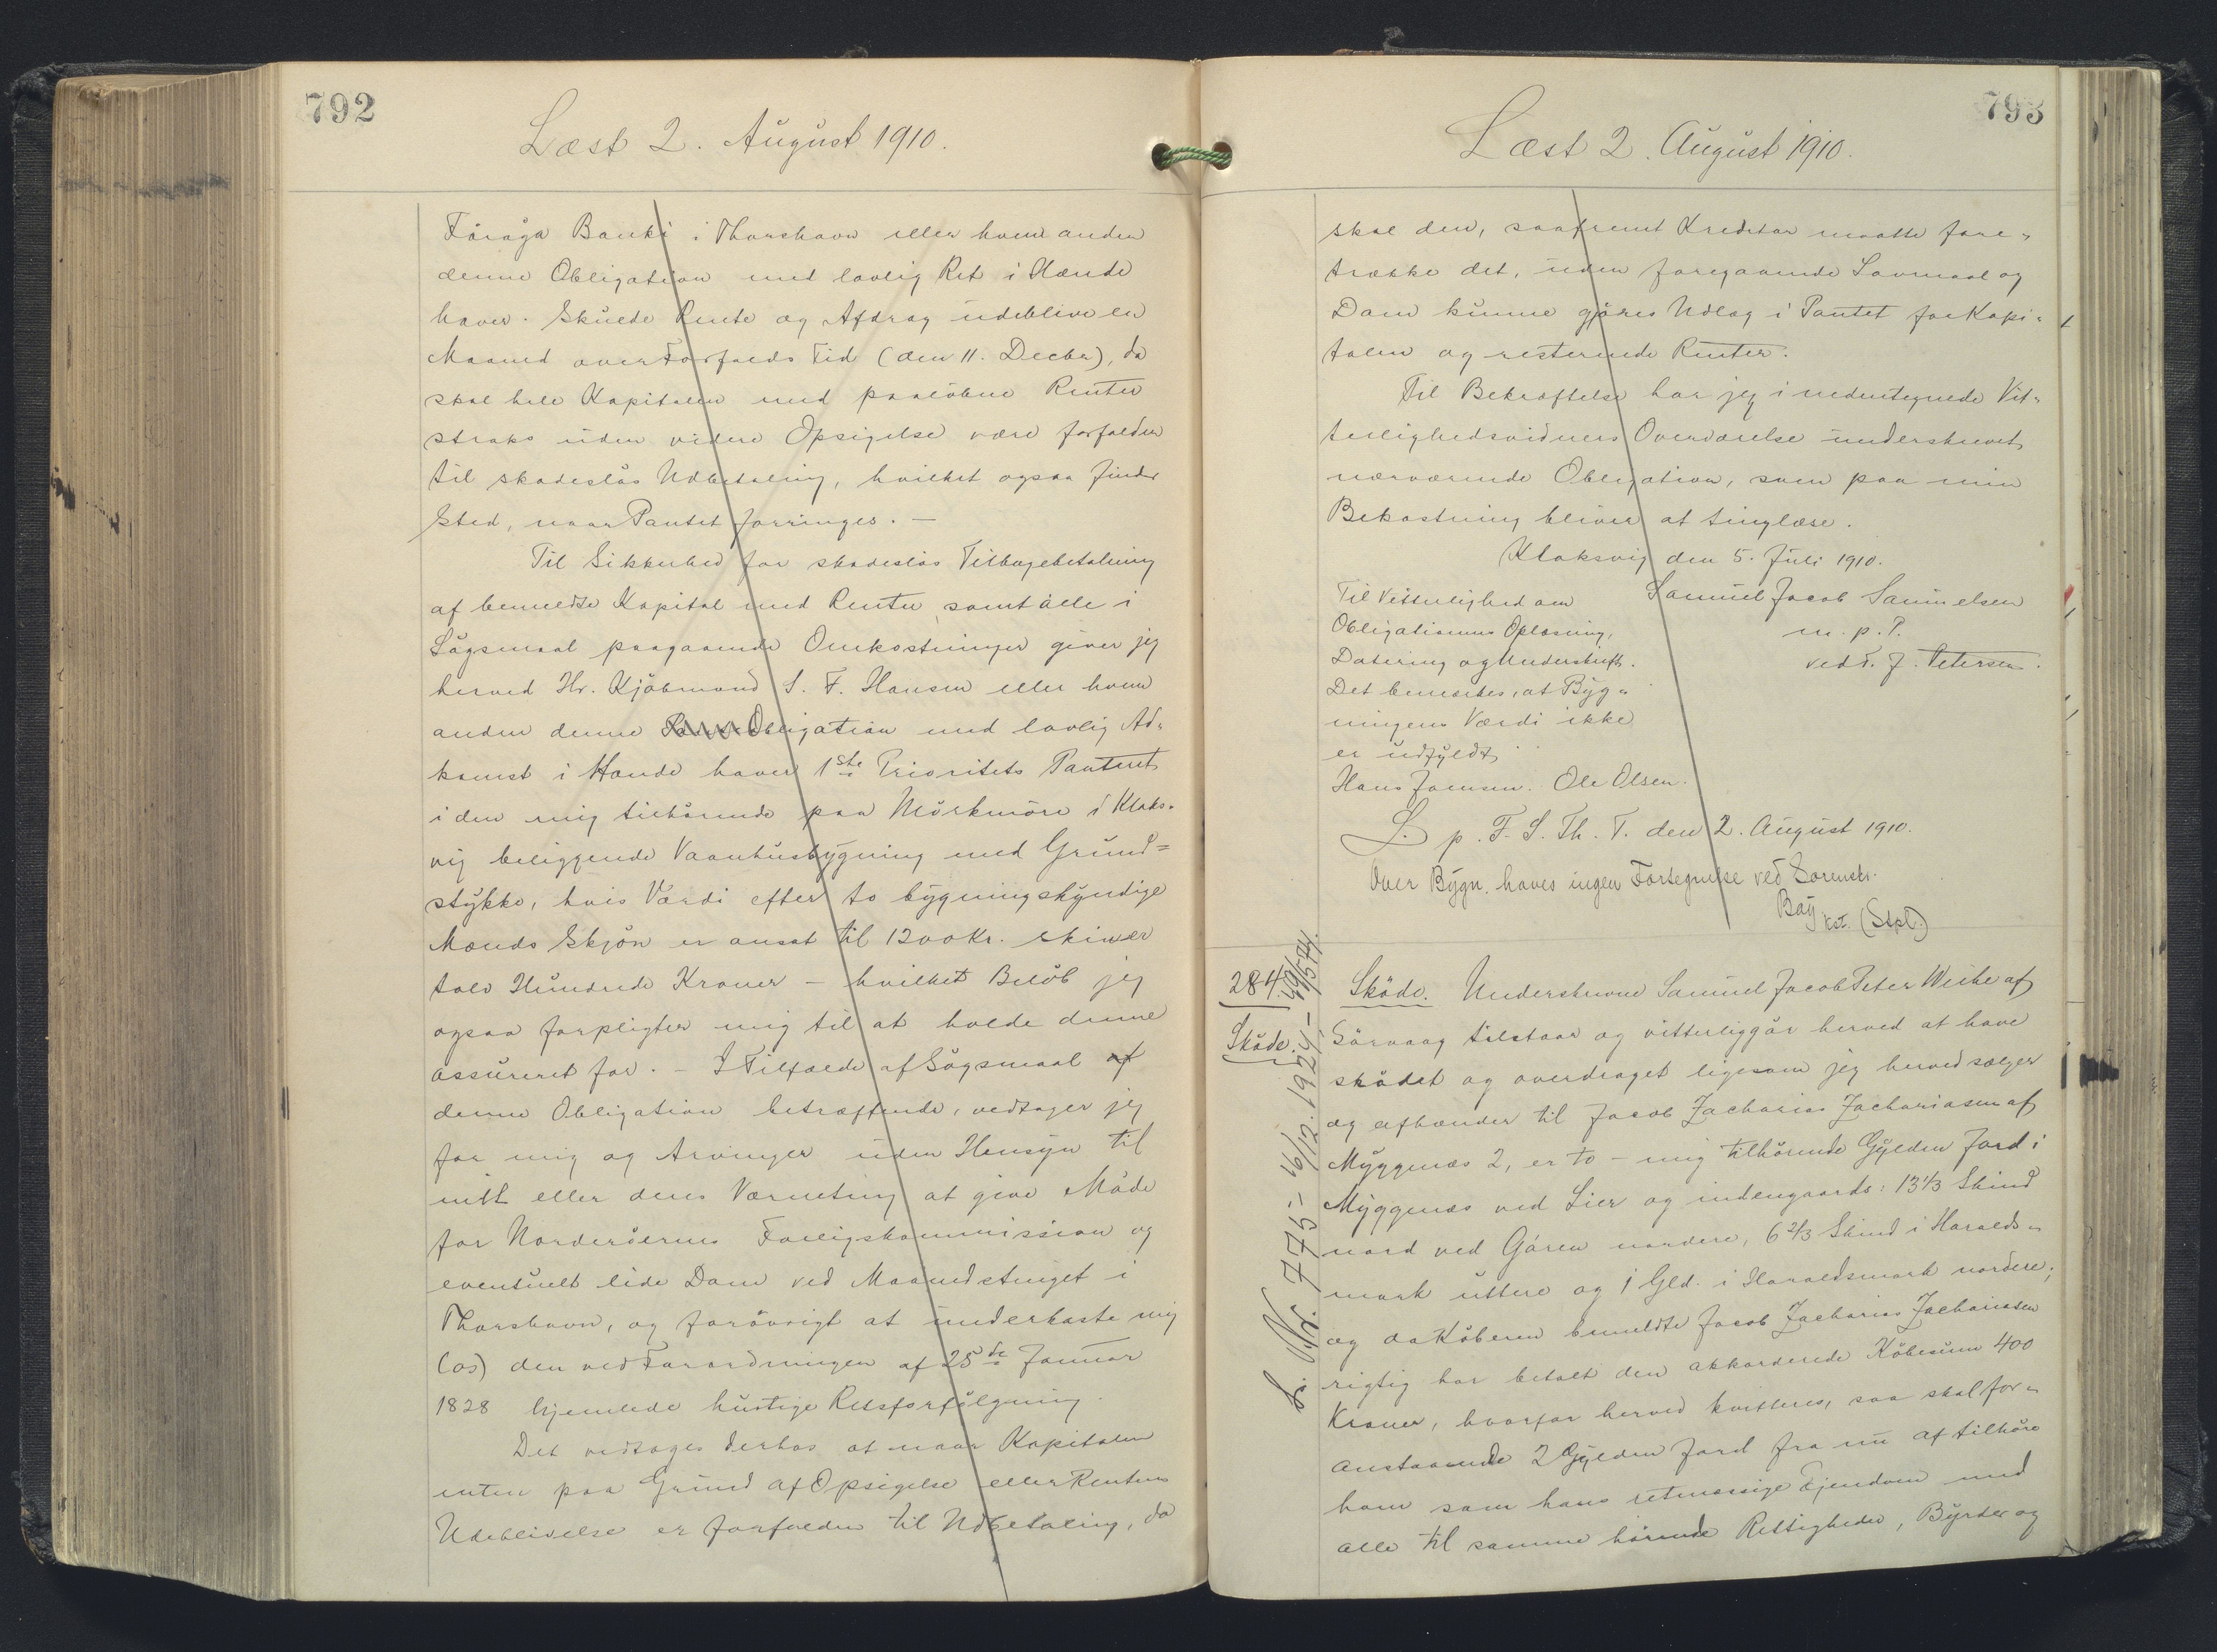 792
Læst 2. August 1910.
Föroya Banki i Thorshavn eller hvem anden
denne Obligation med lovlig Ret i Hænde
haver. Skulde Rente og Afdrag udeblive en
Maaned over Forfalds Tid (den 11. Decbr), da
skal hele Kapitalen med paaløbne Renter
straks uden videre Opsigelse være forfalden
til skadesløs Udbetaling, hvilket ogsaa finder
Sted, naar Pantet forringes. —
Til Sikkerhed for skadesløs Tilbagebetaling
af bemeldte Kapital med Renter samt alle i
Søgsmaal paagaaende Omkostninger giver jeg
herved Hr. Kjøbmand S. F. Hansen eller hvem
anden denne Obligation med lovlig Ad-
komst i Hænde haver 1ste Prioritets Panteret
i den mig tilhørende paa Mörkmöre i Klaks-
vig beliggende Vaanhusbygning med Grund=
stykke, hvis Værdi efter to bygningskyndige
Mænds Skjøn er ansat til 1200 Kr. skriver
tolv Hundrede Kroner — hvilket Beløb jeg
ogsaa forpligter mig til at holde denne
assureret for. — I Tilfælde af Søgsmaal af
denne Obligation betræffende, vedtager jeg
for mig og Arvinger uden Hensyn til
mit eller deres Værneting at give Møde
for Norderøernes Forligskommission og
eventuelt lide Dom ved Maanedstinget i
Thorshavn, og forøvrigt at underkaste mig
(os) den ved Forordningen af 25de Januar
1828 hjemlede hurtige Retsforfølgning.
Det vedtages derhos at naar Kapitalen
enten paa Grund af Opsigelse eller Rentens
Udeblivelse er forfalden til Udbetaling, da
793
Læst 2. August 1910.
skal den, saafremt Kreditor maatte fore-
trække det, uden foregaaende Lovmaal og
Dom kunne gjøres Udlæg i Pantet for Kapi-
talen og resterende Renter.
Til Bekræftelse har jeg i nedentegnede Vit-
terlighedsvidners Overværelse underskrevet
nærværende Obligation, som paa min
Bekostning bliver at tinglæse.
Klaksvig den 5. Juli 1910.
Til Vitterlighed om Samuel Jacob Samuelsen
Obligationens Oplæsning, m. p. P.
Datering og Underskrift. ved T. J. Petersen.
Det bemærkes, at Byg-
ningens Værdi ikke
er udfyldt
Hans Joensen. Ole Olsen.
L. p. F. S. Th. T. den 2. August 1910.
Over Bygn. haves ingen Fortegnelse ved Sorenskr.
Bay kst. (Stpl.)
284.
Skøde.
L. Nr. 775 - 16/12. 1924 - 49/574.
Skøde. Underskrevne Samuel Jacob Peter Weihe af
Sørvaag tilstaar og vitterliggør herved at have
skødet og overdraget ligesom jeg herved sælger
og afhænder til Jacob Zacharias Zachariasen af
Myggenæs 2, er to — mig tilhørende Gylden Jord i
Myggenæs ved Lier og indengaards: 13 1/3 Skind
nord ved Gåren nordere, 6 2/3 Skind i Haralds-
mørk uttere og 1 Gld. i Haraldsmørk nordere;
og da Køberen bemeldte Jacob Zacharias Zachariasen
rigtig har betalt den akkorderede Købesum 400
Kroner, hvorfor herved kvitteres, saa skal for-
anstaaende 2 Gylden Jord fra nu af tilhøre
ham som hans retmæssige Ejendom med
alle til samme hørende Rettigheder, Byrder og